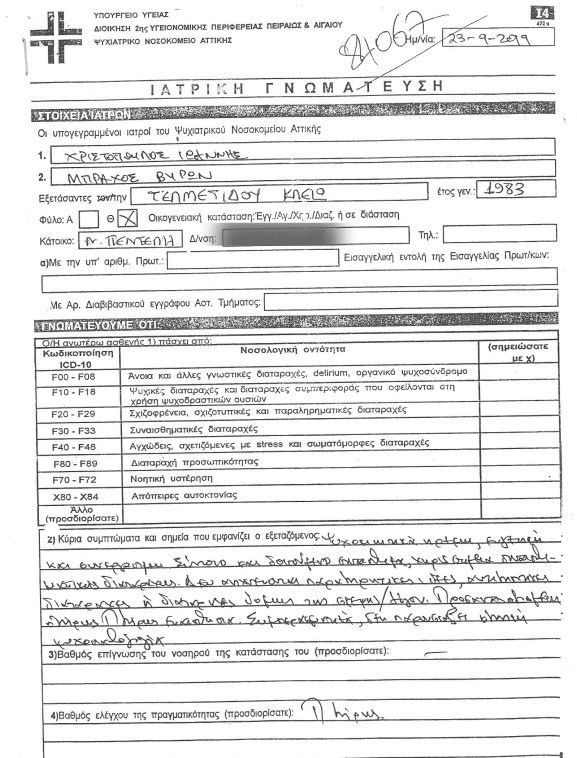 ΥΠΟΥΡΓΕΙΟ ΥΓΕΙΑΣ
ΔΙΟΙΚΗΣΗ 2ης ΥΓΕΙΟΝΟΜΙΚΗΣ ΠΕΡΙΦΕΡΕΙΑΣ ΠΕΙΡΑΙΩΣ & ΑΙΓΑΙΟΥ
ΨΥΧΙΑΤΡΙΚΟ ΝΟΣΟΚΟΜΕΙΟ ΑΤΤΙΚΗΣ
Ημ/νία: 23-9-2019
Ι4
ΙΑΤΡΙΚΗ ΓΝΩΜΑΤΕΥΣΗ
ΣΤΟΙΧΕΙΑ ΙΑΤΡΩΝ
Οι υπογεγραμμένοι ιατροί του Ψυχιατρικού Νοσοκομείου Αττικής
1. ΧΡΙΣΤΟΠΟΥΛΟΣ ΙΩΑΝΝΗΣ
2. ΜΠΡΑΧΟΣ ΒΥΡΩΝ
Εξετάσαντες τον/την ΤΕΛΜΕΤΙΔΟΥ ΚΛΕΙΩ έτος γεν.: 1983
Φύλο: Α Θ Χ Οικογενειακή κατάσταση: Έγ./Αγ./Χηρ./Διαζ. ή σε διάσταση
Κάτοικο: Ν. ΠΕΝΤΕΛΗ Δ/νση: Τηλ.:
α) Με την υπ' αριθμ. Πρωτ.: Εισαγγελική εντολή της Εισαγγελίας Πρωτ/κων:
Με Αρ. Διαβιβαστικού εγγράφου Αστ. Τμήματος:
ΓΝΩΜΑΤΕΥΟΥΜΕ ΟΤΙ:
Ο/Η ανωτέρω ασθενής 1) πάσχει από:
Κωδικοποίηση ICD-10 Νοσολογική οντότητα (σημειώσατε με χ)
F00 - F08 Άνοια και άλλες γνωστικές διαταραχές, delirium, οργανικό ψυχοσύνδρομο
F10 - F18 Ψυχικές διαταραχές και διαταραχές συμπεριφοράς που οφείλονται στη χρήση ψυχοδραστικών ουσιών
F20 - F29 Σχιζοφρένεια, σχιζοτυπικές και παραληρηματικές διαταραχές
F30 - F33 Συναισθηματικές διαταραχές
F40 - F48 Αγχώδεις, σχετιζόμενες με stress και σωματόμορφες διαταραχές
F80 - F89 Διαταραχή προσωπικότητας
F70 - F72 Νοητική υστέρηση
X80 - X84 Απόπειρες αυτοκτονίας
Άλλο (προσδιορίσατε)
2) Κύρια συμπτώματα και σημεία που εμφανίζει ο εξεταζόμενος
3) Βαθμός επίγνωσης του νοσηρού της κατάστασης του (προσδιορίσατε): —
4) Βαθμός ελέγχου της πραγματικότητας (προσδιορίσατε): Πλήρης